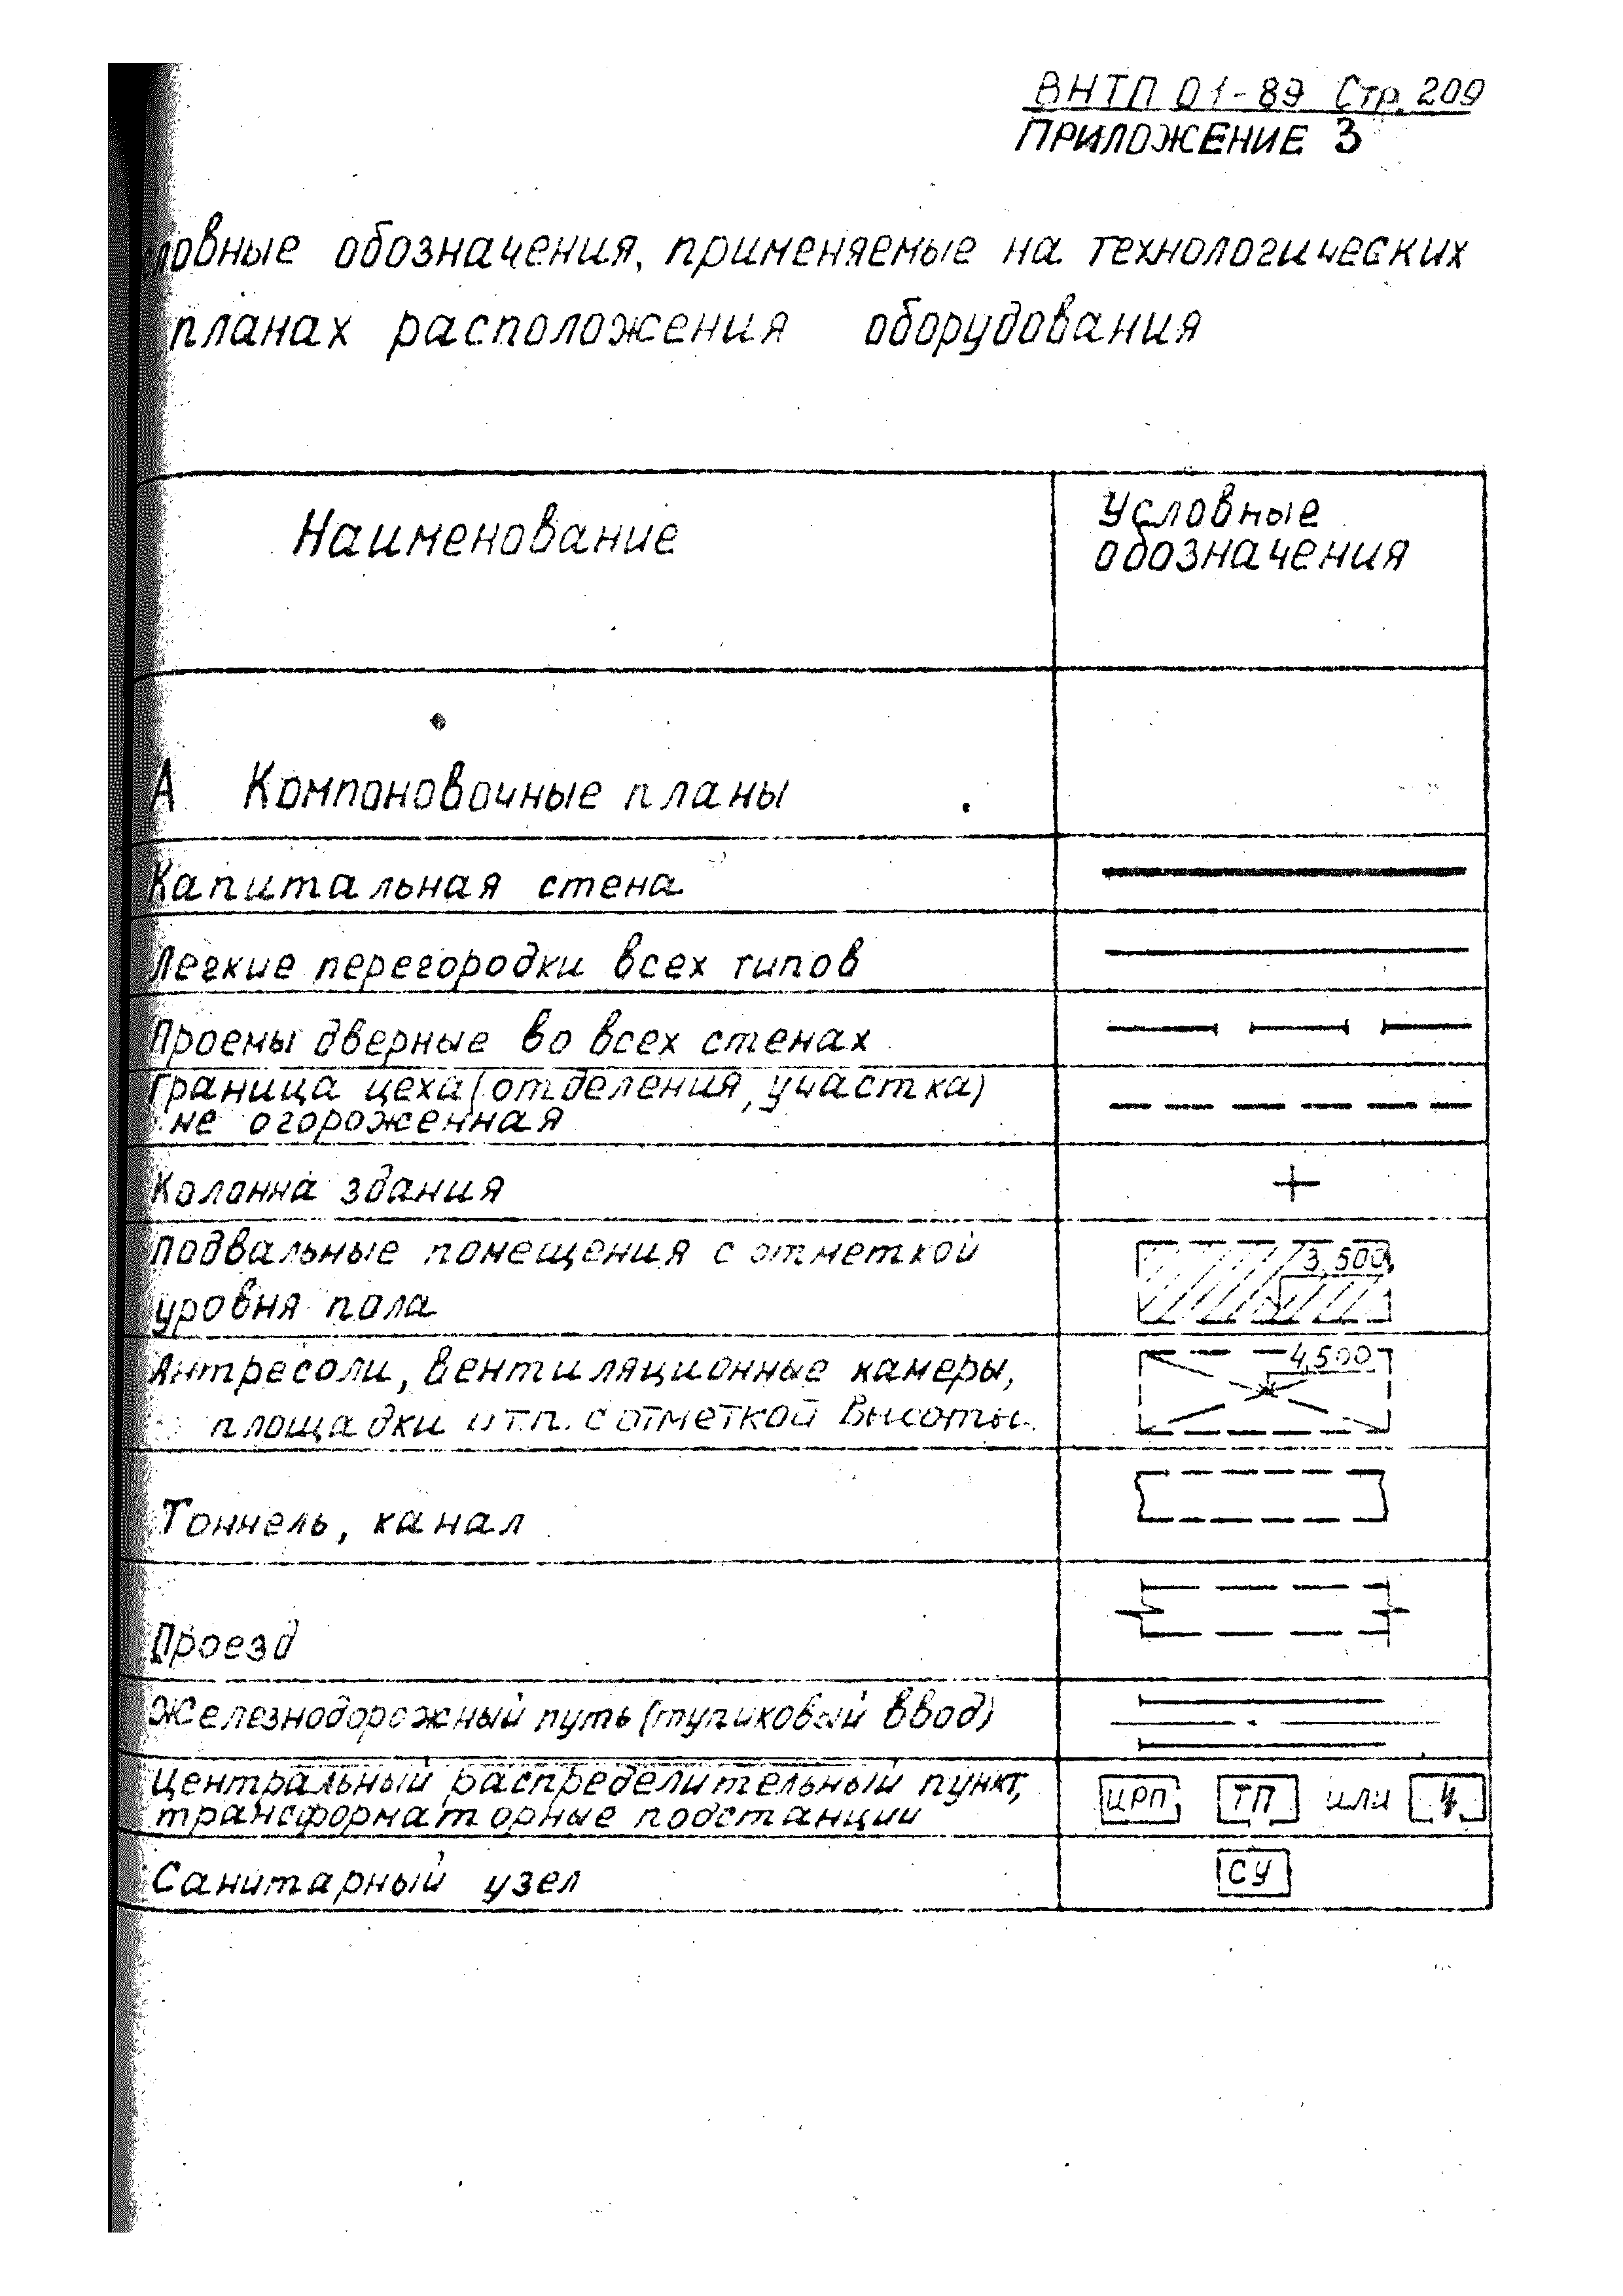 ВНТП 01-89 Стр. 209
ПРИЛОЖЕНИЕ 3
словные обозначения, применяемые на технологических
планах расположения оборудования
Наименование
Условные
обозначения
А Компоновочные планы
Капитальная стена
Легкие перегородки всех типов
Проемы дверные во всех стенах
Граница цеха (отделения, участка)
не огороженная
Колонна здания
Подвальные помещения с отметкой
уровня пола
3,500
Антресоли, вентиляционные камеры,
площадки и т.п. с отметкой высоты.
4,500
Тоннель, канал
Проезд
Железнодорожный путь (тупиковый ввод)
Центральный распределительный пункт,
трансформаторные подстанции
ЦРП ТП или
Санитарный узел
СУ